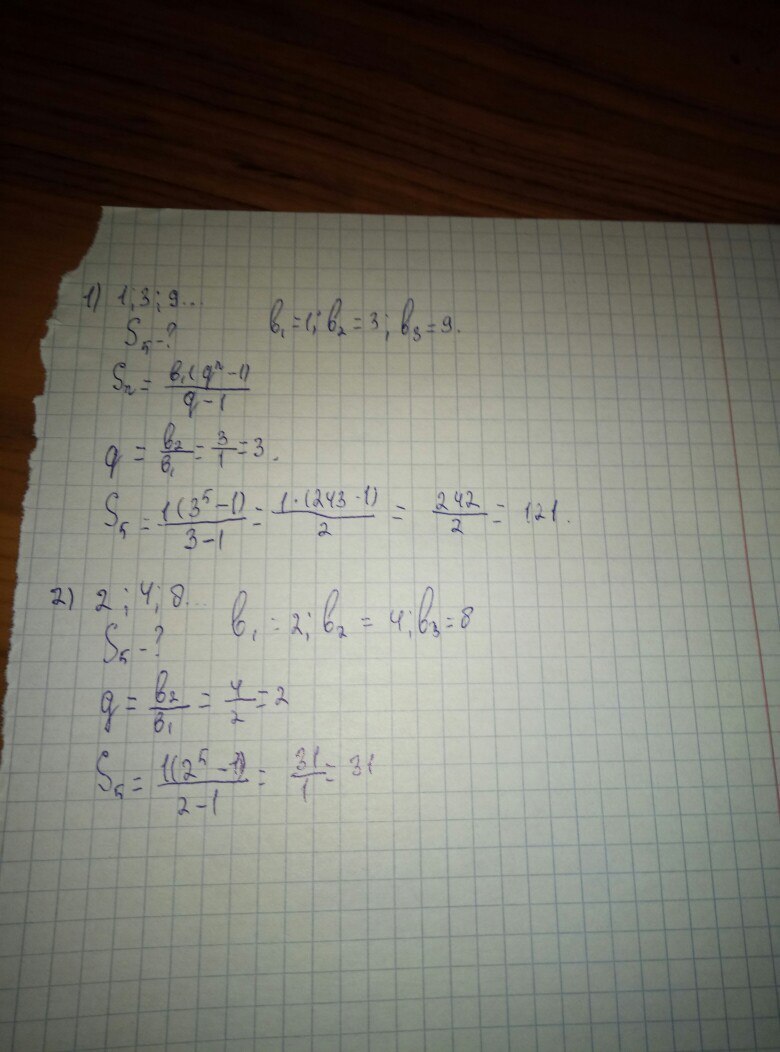 1) 1; 3; 9...
S₅ - ? в₁ = 1; в₂ = 3; в₃ = 9.
Sₙ = в₁(qⁿ - 1) / q - 1
q = в₂/в₁ = 3/1 = 3.
S₅ = 1(3⁵ - 1) / 3 - 1 = 1·(243 - 1) / 2 = 242/2 = 121.
2) 2; 4; 8...
S₅ - ? в₁ = 2; в₂ = 4; в₃ = 8
q = в₂/в₁ = 4/2 = 2
S₅ = 1(2⁵ - 1) / 2 - 1 = 31/1 = 31